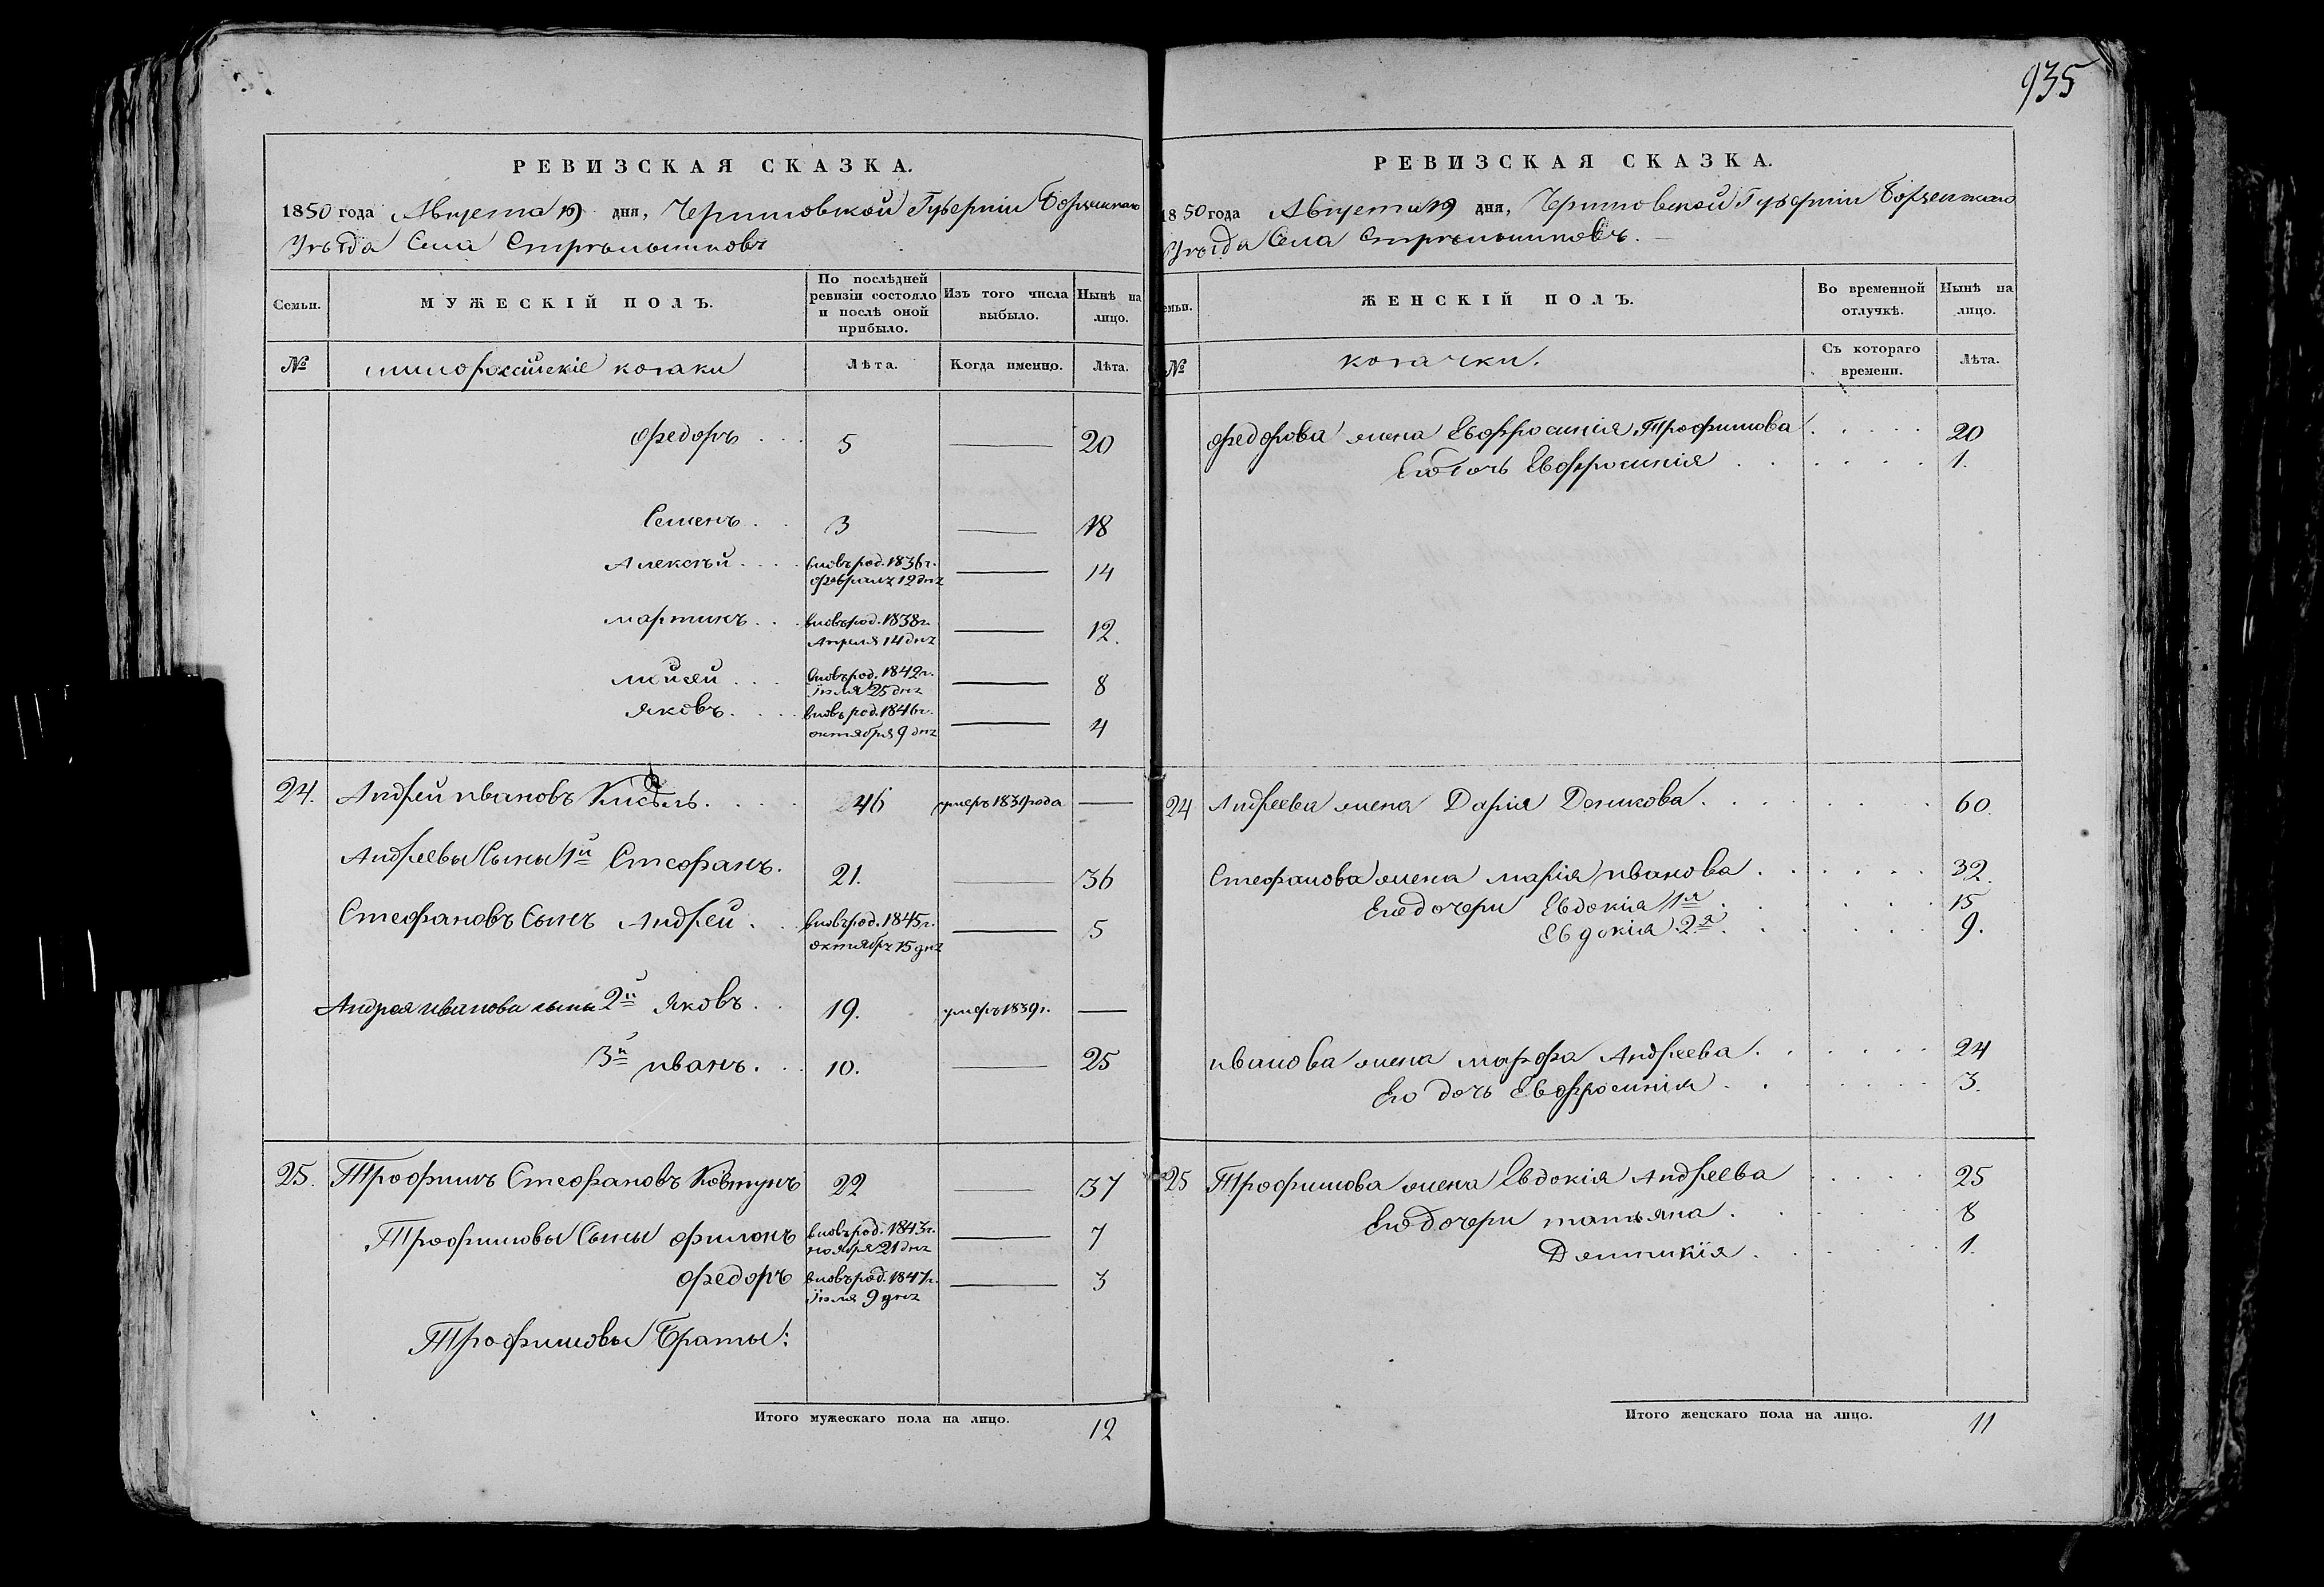 935
РЕВИЗСКАЯ СКАЗКА.
1850 года Августа 19 дня, Черниговской Губерніи Борзенскаго
Уѣзда Села Стрѣльниковъ
Семьи.
МУЖЕСКІЙ ПОЛЪ.
По послѣдней ревизіи состояло и послѣ оной прибыло.
Изъ того числа выбыло.
Нынѣ на лицо.
№ малороссійскіе козаки Лѣта. Когда именно. Лѣта.
Федоръ . . 5 — 20
Семенъ . . 3 — 18
Алексѣй . . . . вновь род. 1836 г. — 14
февраля 12 дня
мартинъ . . . вновь род. 1838 г. — 12.
Апреля 14 дня
мойсей . . . вновь род. 1842 г. — 8
іюля 25 дня
яковъ . . . . вновь род. 1846 г. — 4
октября 9 дня
24. Андрей ивановъ . . . . 46 умеръ 1839 года —
Андреевы Сыны 1й Стефанъ. 21. — 36
Стефановъ Сынъ Андрей . . вновь род. 1845 г. — 5
октября 15 дня
Андрея иванова сыны 2й Яковъ . . 19. умеръ 1839 г. —
3й иванъ . . . 10. — 25
25. Трофимъ Стефановъ Ковтунъ 22 — 37
Трофимовы Сыны филонъ вновь род. 1843 г. — 7
ноября 21 дня
федоръ вновь род. 1847 г. — 3
іюля 9 дня
Трофимовы Браты:
Итого мужескаго пола на лицо. 12
РЕВИЗСКАЯ СКАЗКА.
1850 года Августа 19 дня, Черниговской Губерніи Борзенскаго
Уѣзда Села Стрѣльниковъ. —
Семьи.
ЖЕНСКІЙ ПОЛЪ.
Во временной отлучкѣ.
Нынѣ на лицо.
№ козачки. Съ котораго времени. Лѣта.
федорова жена Евфросинія Трофимова . . . . . 20
Его дочь Евфросинія . . . . . . 1.
24 Андреева жена Дарія . . . . . . . 60.
Стефанова жена марія иванова . . . . . . 32.
Его дочери Евдокія 1я . . . . . 15
Евдокія 2я . . . . . 9.
иванова жена марфа Андреева . . . . . . 24
Его дочь Евфросинія . . . . . . 3.
25 Трофимова жена Евдокія Андреева . . . . 25
Его дочери татьяна . . . . . 8
. . . . . 1.
Итого женскаго пола на лицо. 11